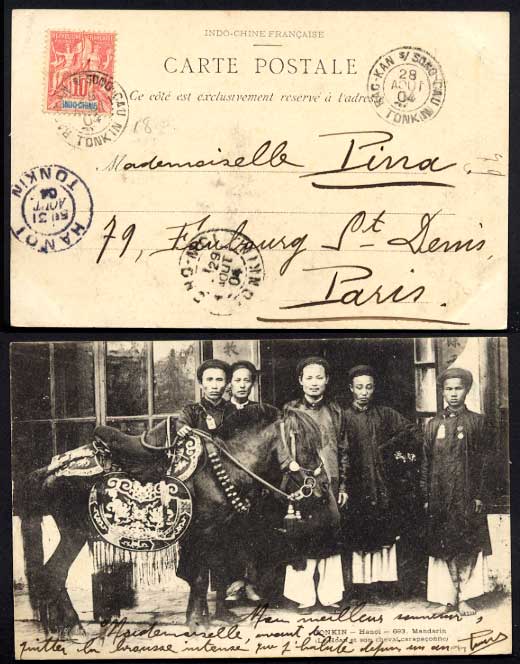 INDO-CHINE FRANÇAISE
CARTE POSTALE
Ce côté est exclusivement réservé à l'adresse
10
INDO-CHINE
BAC-KAN S/ SONG-CAU
28
AOUT
04
TONKIN
S/ SONG-CAU
04
TONKIN
18
Mademoiselle Pinna,
HANOI
31
AOUT
04
TONKIN
79, Faubourg St Denis,
29
AOUT
04
Paris.
TONKIN — Hanoï — 693. Mandarin
et son cheval caparaçonné
Mon meilleur souvenir,
Mademoiselle, avant de
quitter la brousse intense que j'habite depuis un an